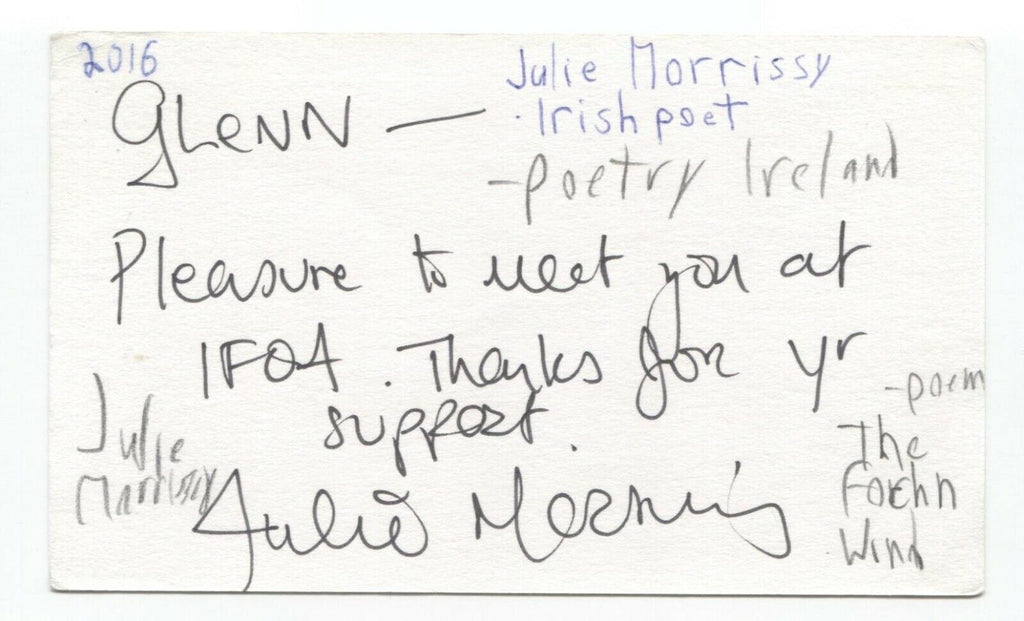 2016
Julie Morrissy
· Irish poet
- Poetry Ireland
GLeNN —
Pleasure to meet you at
IFOA. Thanks for yr
support.
Julie Morrissy
Julie
Morrissy
- poem
The
Foehn
Wind